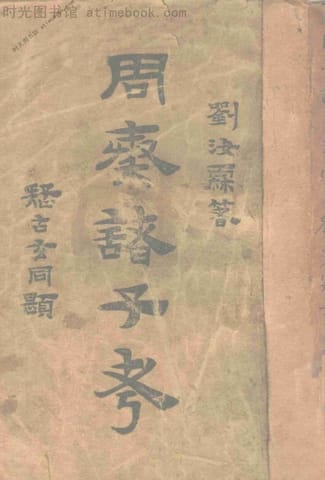 时光图书馆 atimebook.com
劉汝霖著
周秦諸子考
疑古玄同題